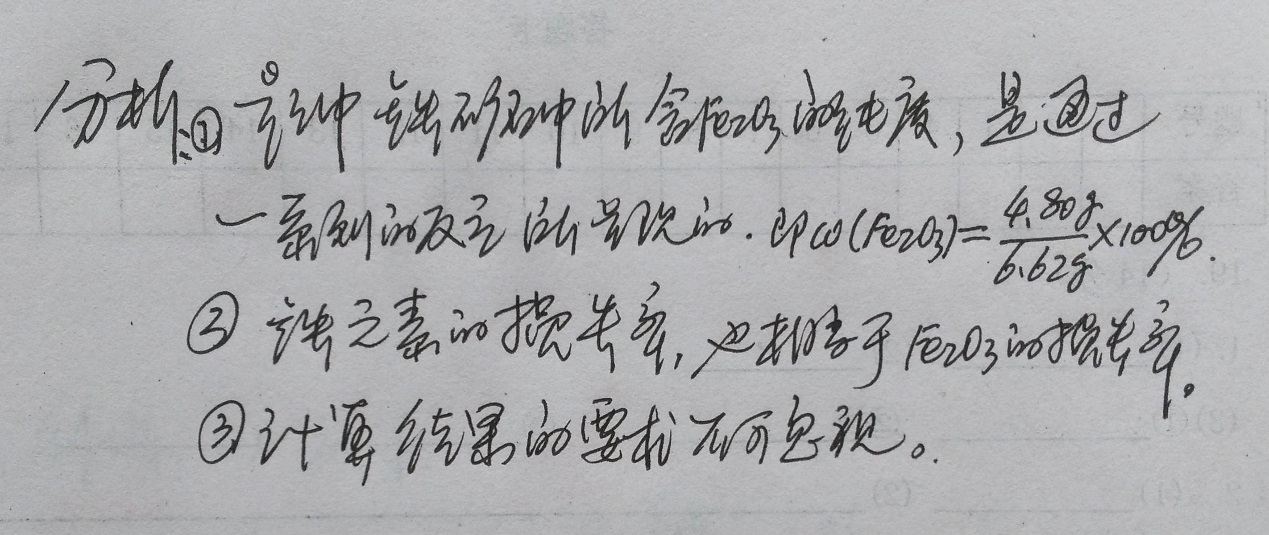 分析:①题中铁矿石中所含Fe2O3的纯度,是通过
一系列的反应所呈现的.即ω(Fe2O3)=4.80g/6.62g×100%.
②铁元素的损失率,也相当于Fe2O3的损失率。
③计算结果的要求不可忽视。